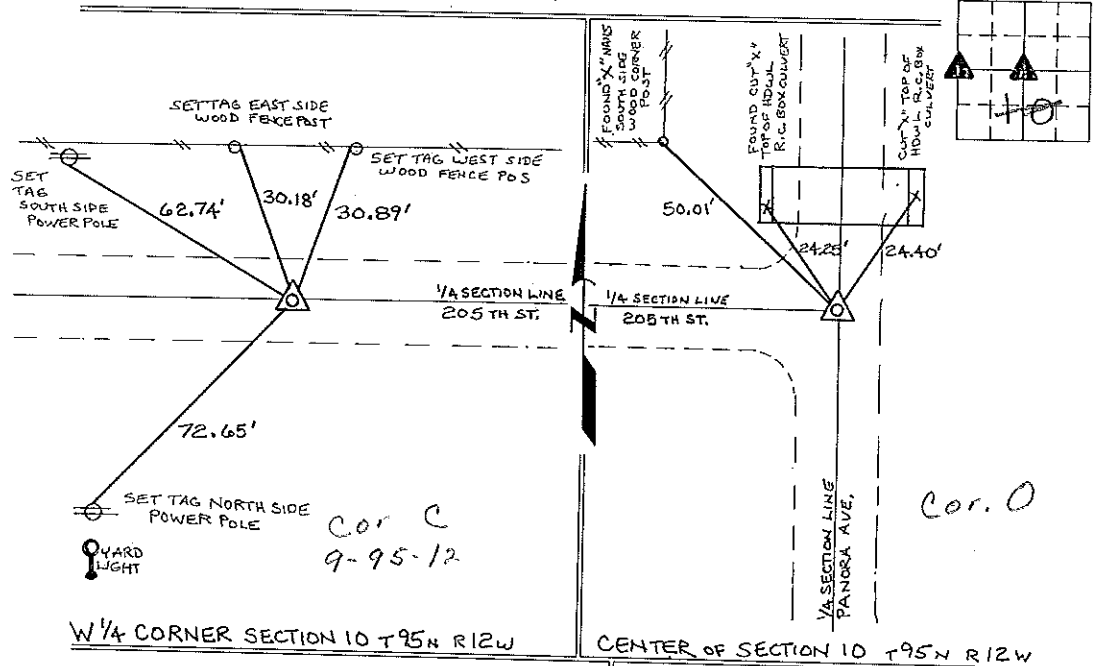 SET TAG EAST SIDE
WOOD FENCE POST
SET TAG WEST SIDE
WOOD FENCE POS
SET
TAG
SOUTH SIDE
POWER POLE
62.74'
30.18'
30.89'
1/4 SECTION LINE
205TH ST.
72.65'
SET TAG NORTH SIDE
POWER POLE
YARD
LIGHT
Cor C
9-95-12
W 1/4 CORNER SECTION 10 T95N R12W
FOUND "X" NAILS
SOUTH SIDE
WOOD CORNER
POST
FOUND CUT "X"
TOP OF HDWL
R.C. BOX CULVERT
CUT "X" TOP OF
HDWL R.C. BOX
CULVERT
50.01'
24.25'
24.40'
1/4 SECTION LINE
205TH ST.
1/4 SECTION LINE
PANORA AVE.
Cor. O
CENTER OF SECTION 10 T95N R12W
N